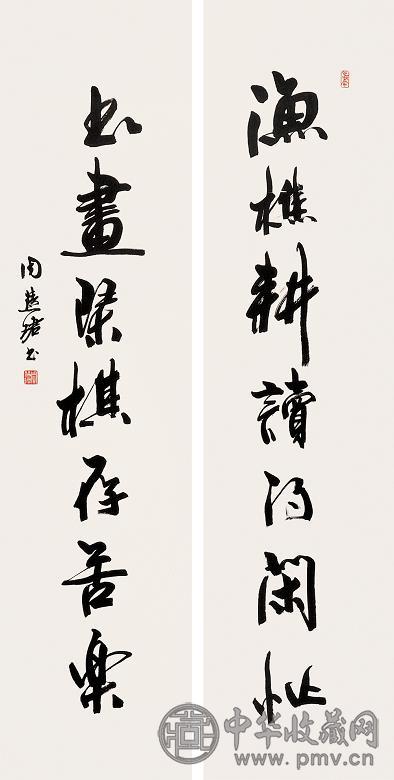 漁樵耕讀得閑
書畫琹棋存苦樂
周慧珺書
中华收藏网
www.pmv.cn